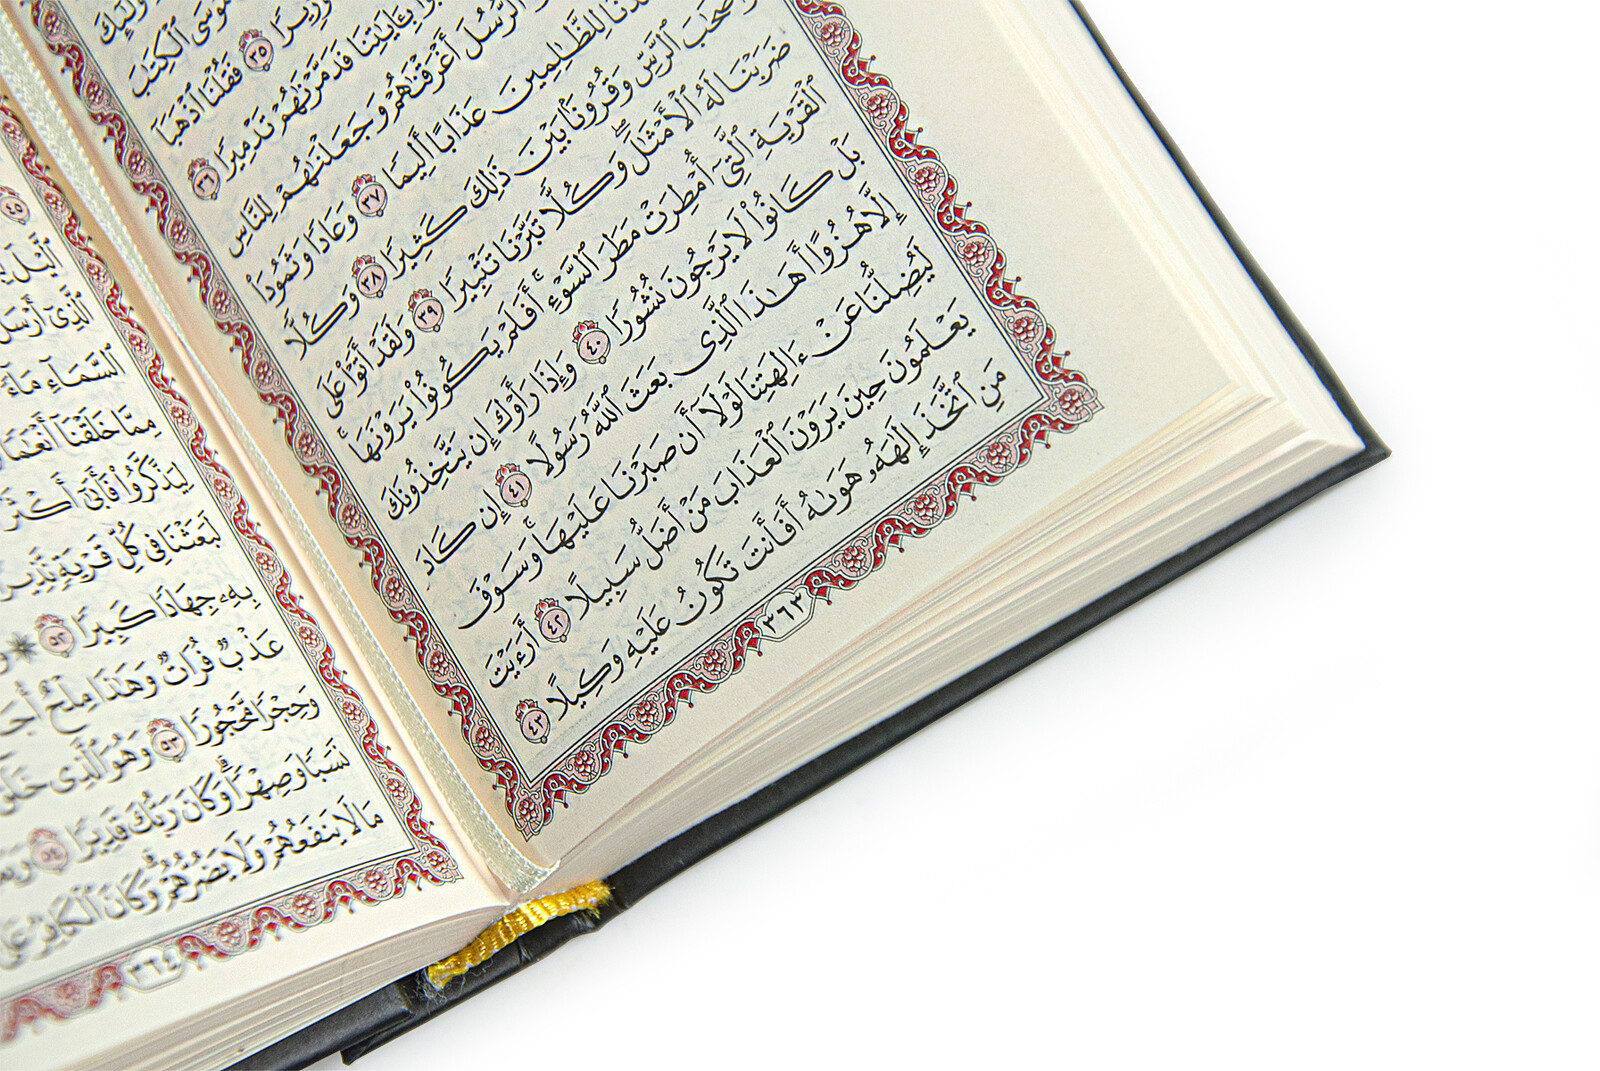 مُوسَى ٱلْكِتَٰبَ
وَزِيرًا ٣٥ فَقُلْنَا ٱذْهَبَآ
بِـَٔايَٰتِنَا فَدَمَّرْنَٰهُمْ تَدْمِيرًا ٣٦
ٱلرُّسُلَ أَغْرَقْنَٰهُمْ وَجَعَلْنَٰهُمْ لِلنَّاسِ
لِلظَّٰلِمِينَ عَذَابًا أَلِيمًا ٣٧ وَعَادًا وَثَمُودَا۟
وَأَصْحَٰبَ ٱلرَّسِّ وَقُرُونًۢا بَيْنَ ذَٰلِكَ كَثِيرًا ٣٨ وَكُلًّا
ضَرَبْنَا لَهُ ٱلْأَمْثَٰلَ ۖ وَكُلًّا تَبَّرْنَا تَتْبِيرًا ٣٩ وَلَقَدْ أَتَوْا۟ عَلَى
ٱلْقَرْيَةِ ٱلَّتِىٓ أُمْطِرَتْ مَطَرَ ٱلسَّوْءِ ۚ أَفَلَمْ يَكُونُوا۟ يَرَوْنَهَا ۚ
بَلْ كَانُوا۟ لَا يَرْجُونَ نُشُورًا ٤٠ وَإِذَا رَأَوْكَ إِن يَتَّخِذُونَكَ
إِلَّا هُزُوًا أَهَٰذَا ٱلَّذِى بَعَثَ ٱللَّهُ رَسُولًا ٤١ إِن كَادَ
لَيُضِلُّنَا عَنْ ءَالِهَتِنَا لَوْلَآ أَن صَبَرْنَا عَلَيْهَا ۚ وَسَوْفَ
يَعْلَمُونَ حِينَ يَرَوْنَ ٱلْعَذَابَ مَنْ أَضَلُّ سَبِيلًا ٤٢ أَرَءَيْتَ
مَنِ ٱتَّخَذَ إِلَٰهَهُۥ هَوَىٰهُ أَفَأَنتَ تَكُونُ عَلَيْهِ وَكِيلًا ٤٣
٣٦٣
٤٥
ٱلَّيْلَ
ٱلَّذِىٓ أَرْسَلَ
ٱلسَّمَآءِ مَآءً
مِمَّا خَلَقْنَآ أَنْعَٰمًا
لِيَذَّكَّرُوا۟ فَأَبَىٰٓ أَكْثَرُ
لَبَعَثْنَا فِى كُلِّ قَرْيَةٍ نَّذِيرًا
بِهِۦ جِهَادًا كَبِيرًا ٥٢
عَذْبٌ فُرَاتٌ وَهَٰذَا مِلْحٌ
وَحِجْرًا مَّحْجُورًا ٥٣ وَهُوَ ٱلَّذِى خَلَقَ
نَسَبًا وَصِهْرًا ۗ وَكَانَ رَبُّكَ قَدِيرًا ٥٤
مَا لَا يَنفَعُهُمْ وَلَا يَضُرُّهُمْ ۗ وَكَانَ ٱلْكَافِرُ
٣٦٤